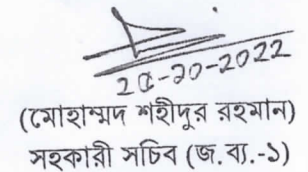 ২৫-১০-2022
(মোহাম্মদ শহীদুর রহমান)
সহকারী সচিব (জ. ব্য.-১)